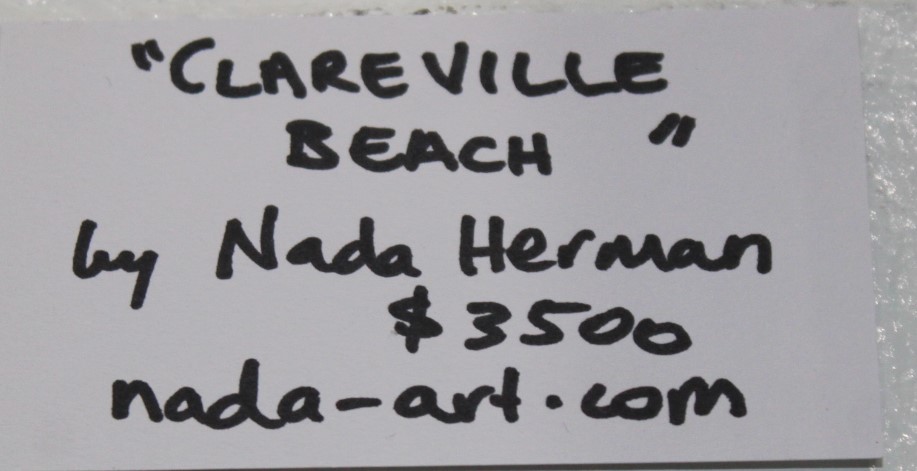 "CLAREVILLE
BEACH "
by Nada Herman
$3500
nada-art.com